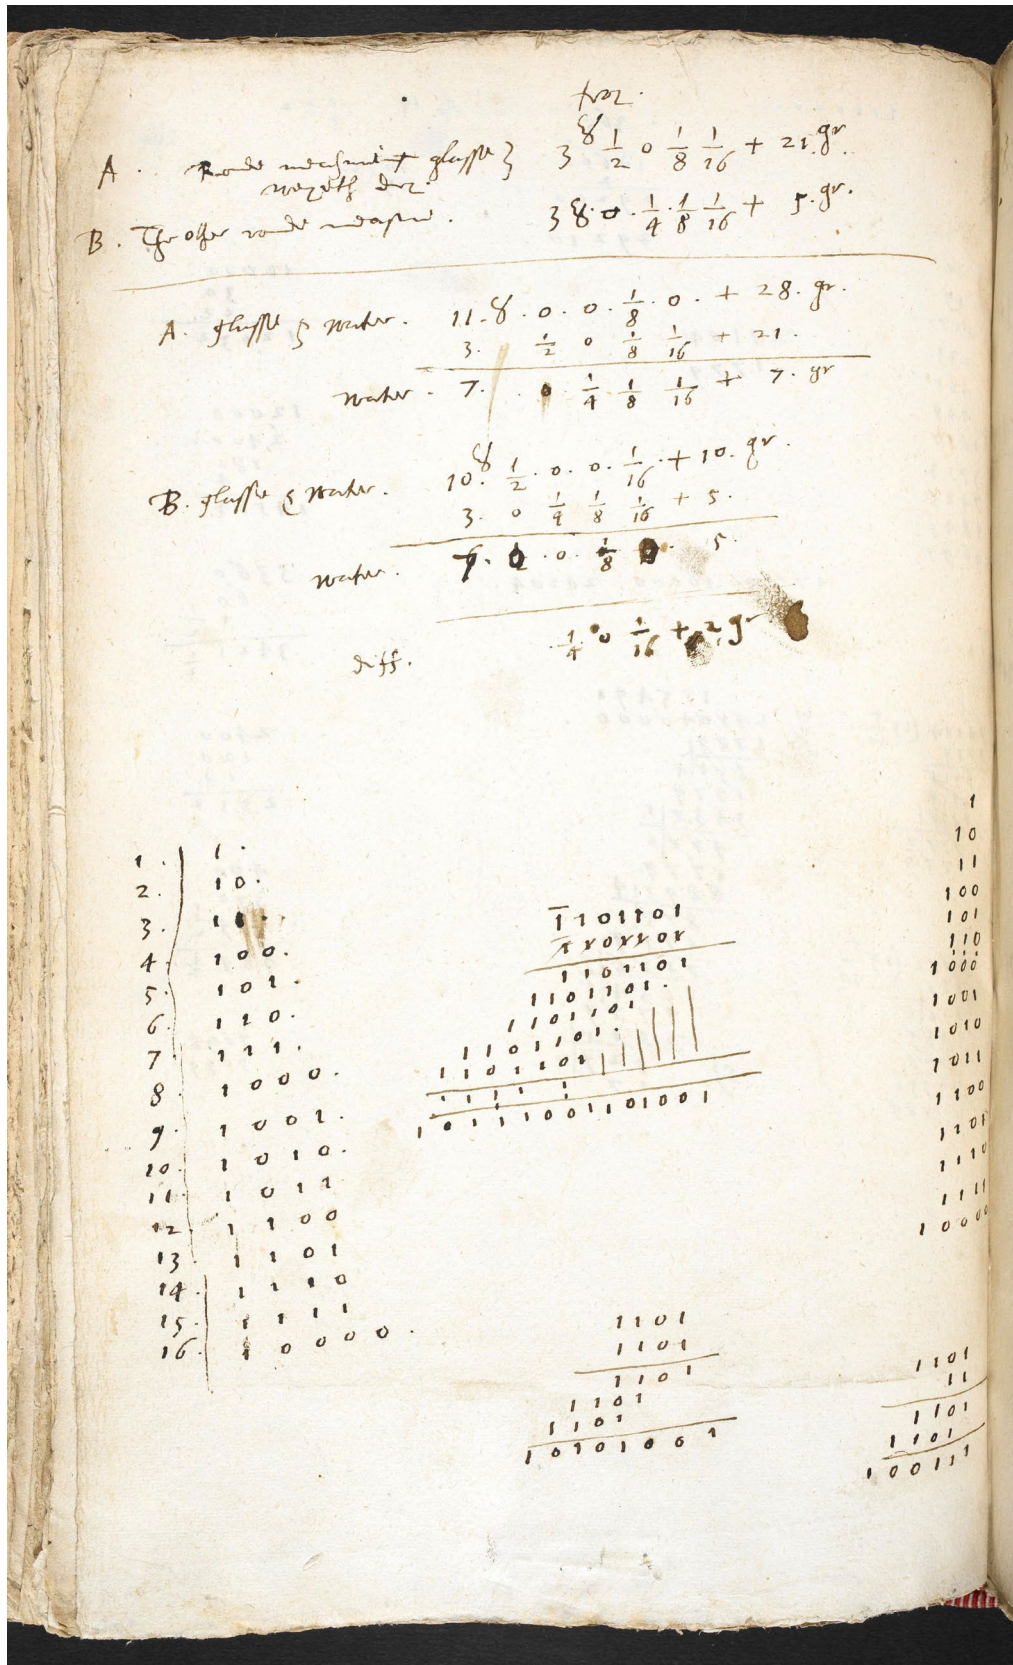 troz.
A. Rounde measuring glasse } 3 ℥ 1/2 0 1/8 1/16 + 21. gr.
wayeth dry.
B. The other rounde measure. 3 ℥. 0. 1/4. 1/8 1/16 + 5. gr.
A. glasse & water. 11. ℥. 0. 0. 1/8. 0. + 28. gr.
3. 1/2 0 1/8 1/16 + 21.
water. 7. 0 1/4 1/8 1/16 + 7. gr
B. glasse & water. 10. ℥ 1/2. 0. 0. 1/16. + 10. gr.
3. 0 1/4 1/8 1/16 + 5.
water. 7. 0. 0. 1/8 0. 5.
diff. 1/4 0 1/16 + 2 gr
1. 1.
2. 10.
3. 11.
4. 100.
5. 101.
6. 110.
7. 111.
8. 1000.
9. 1001.
10. 1010.
11. 1011
12. 1100
13. 1101
14. 1110
15. 1111
16. 10000.
1101101
1101101
1101101
1101101.
1101101
1101101.
1101101
1 1 1 1 1
10111001101001
1101
1101
1101
1101
1101
10101001
1
10
11
100
101
110
1000
1001
1010
1011
1100
1101
1110
1111
10000
1101
11
1101
1101
100111